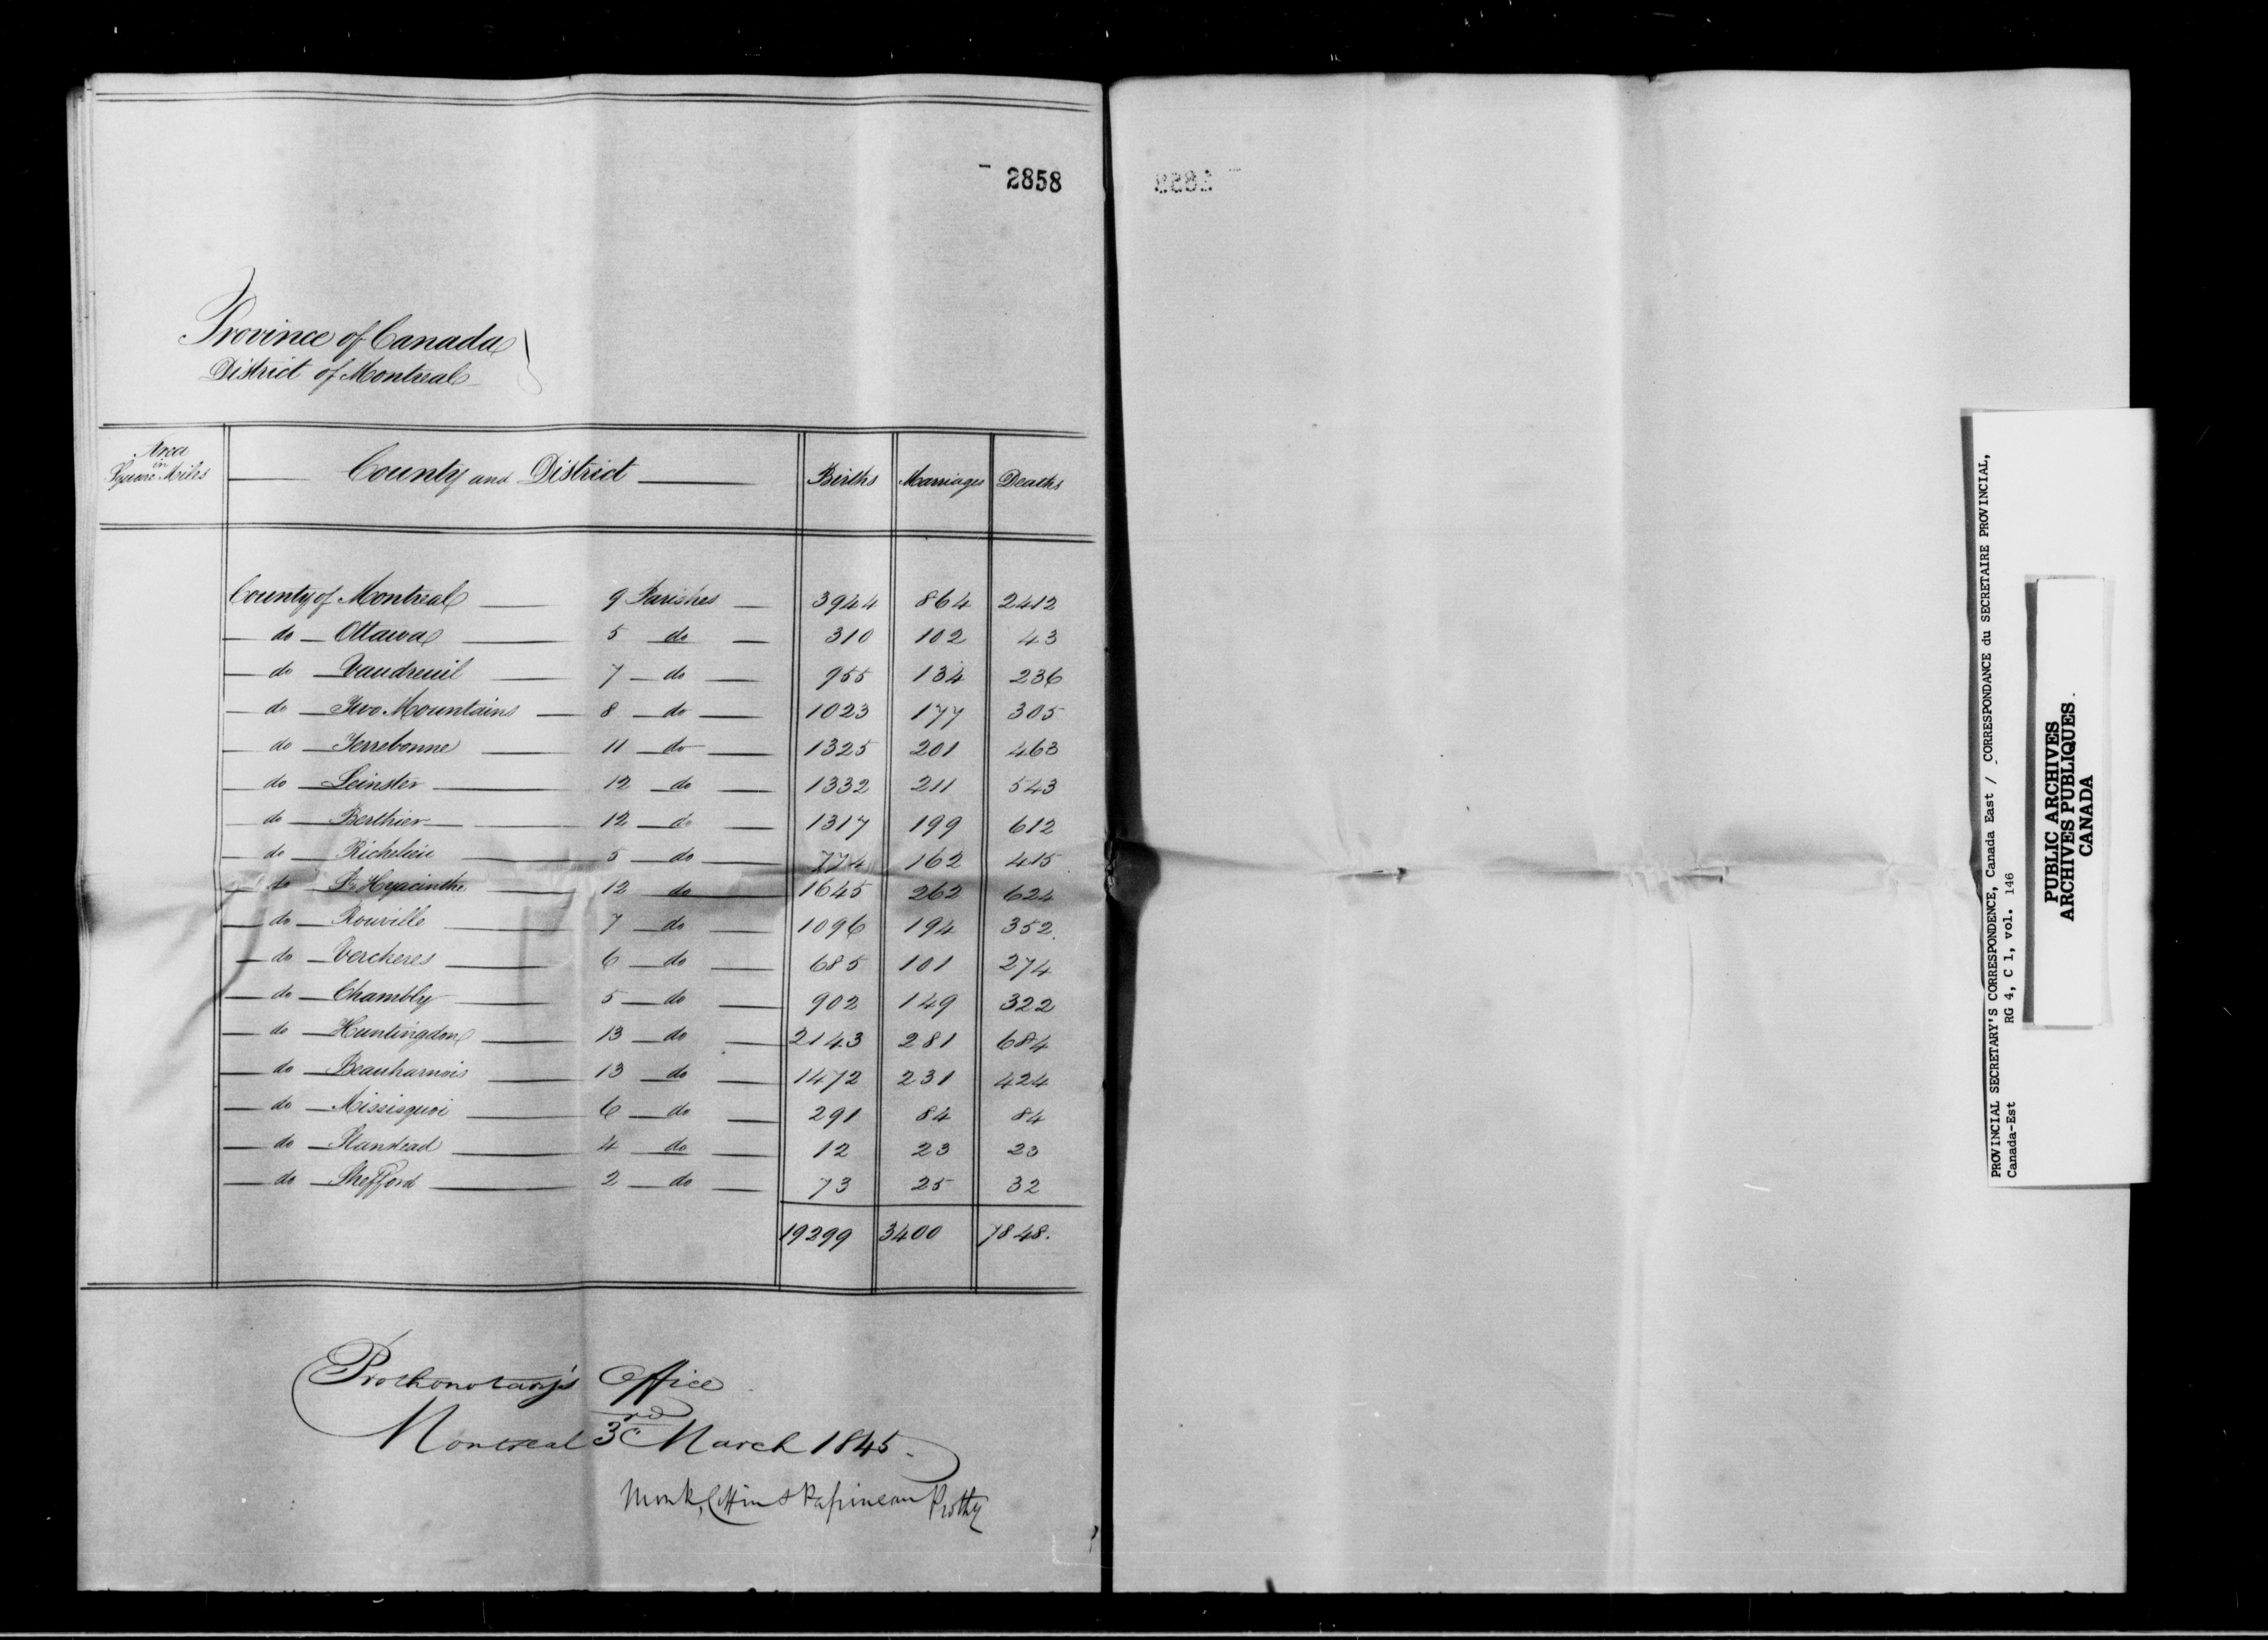 2858
Province of Canada
District of Montreal
Area in Square Miles | County and District | Births | Marriages | Deaths
County of Montreal 9 Parishes 3944 864 2412
do Ottawa 5 do 310 102 43
do Vaudreuil 7 do 955 134 236
do Two Mountains 8 do 1023 177 305
do Terrebonne 11 do 1325 201 463
do Leinster 12 do 1332 211 543
do Berthier 12 do 1317 199 612
do Richelieu 5 do 774 162 415
do St Hyacinthe 12 do 1645 262 624
do Rouville 7 do 1096 194 352
do Vercheres 6 do 685 101 274
do Chambly 5 do 902 149 322
do Huntingdon 13 do 2143 281 684
do Beauharnois 13 do 1472 231 424
do Missisquoi 6 do 291 84 84
do Stanstead 4 do 12 23 23
do Shefford 2 do 73 25 32
19299 3400 7848.
Prothonotary's Office
Montreal 3rd March 1845.
Monk, Coffin & Papineau Prothy
PROVINCIAL SECRETARY'S CORRESPONDENCE, Canada East / CORRESPONDANCE du SECRETAIRE PROVINCIAL,
Canada-Est RG 4, C 1, vol. 146
PUBLIC ARCHIVES
ARCHIVES PUBLIQUES
CANADA